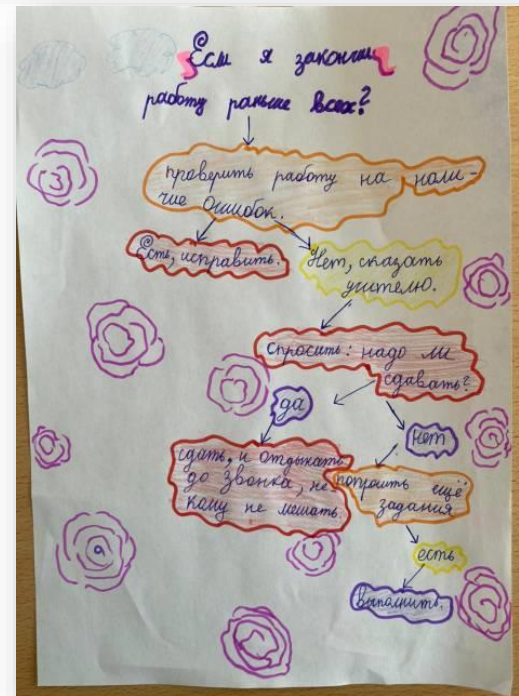 Если я закончил
работу раньше всех?
проверить работу на нали-
чие ошибок.
Есть, исправить.
Нет, сказать
учителю.
спросить: надо ли
сдавать?
да
нет
сдать, и отдыхать
до звонка, не
кому не мешать.
попросить ещё
задания
есть
выполнить.